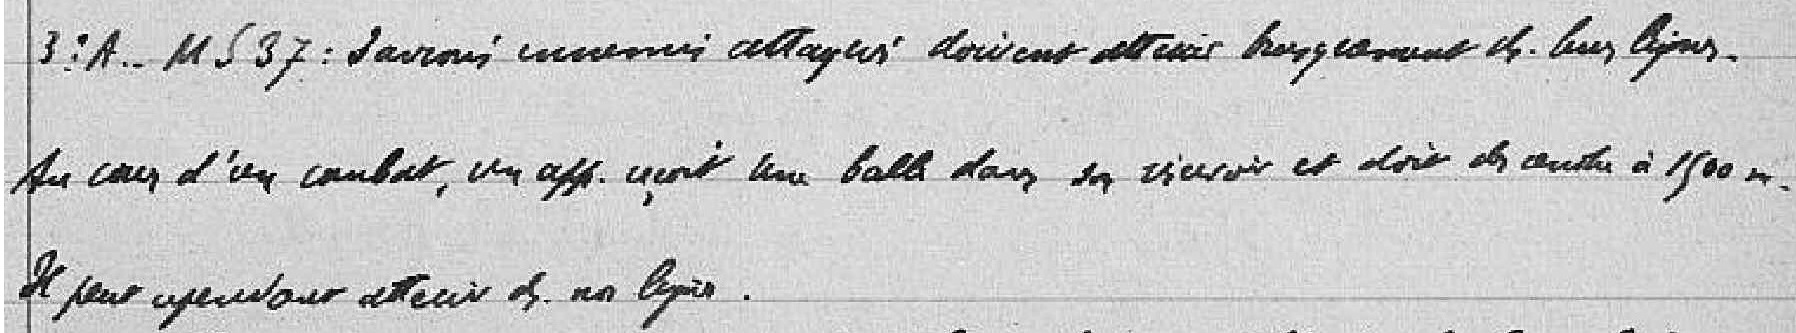 3e A.. MS 37 : 3 avions ennemis attaqués doivent atterrir brusquement ds. leurs lignes.
Au cours d'un combat, un app. reçoit une balle dans son réservoir et doit descendre à 1500 m.
Il peut cependant atterrir ds. nos lignes.